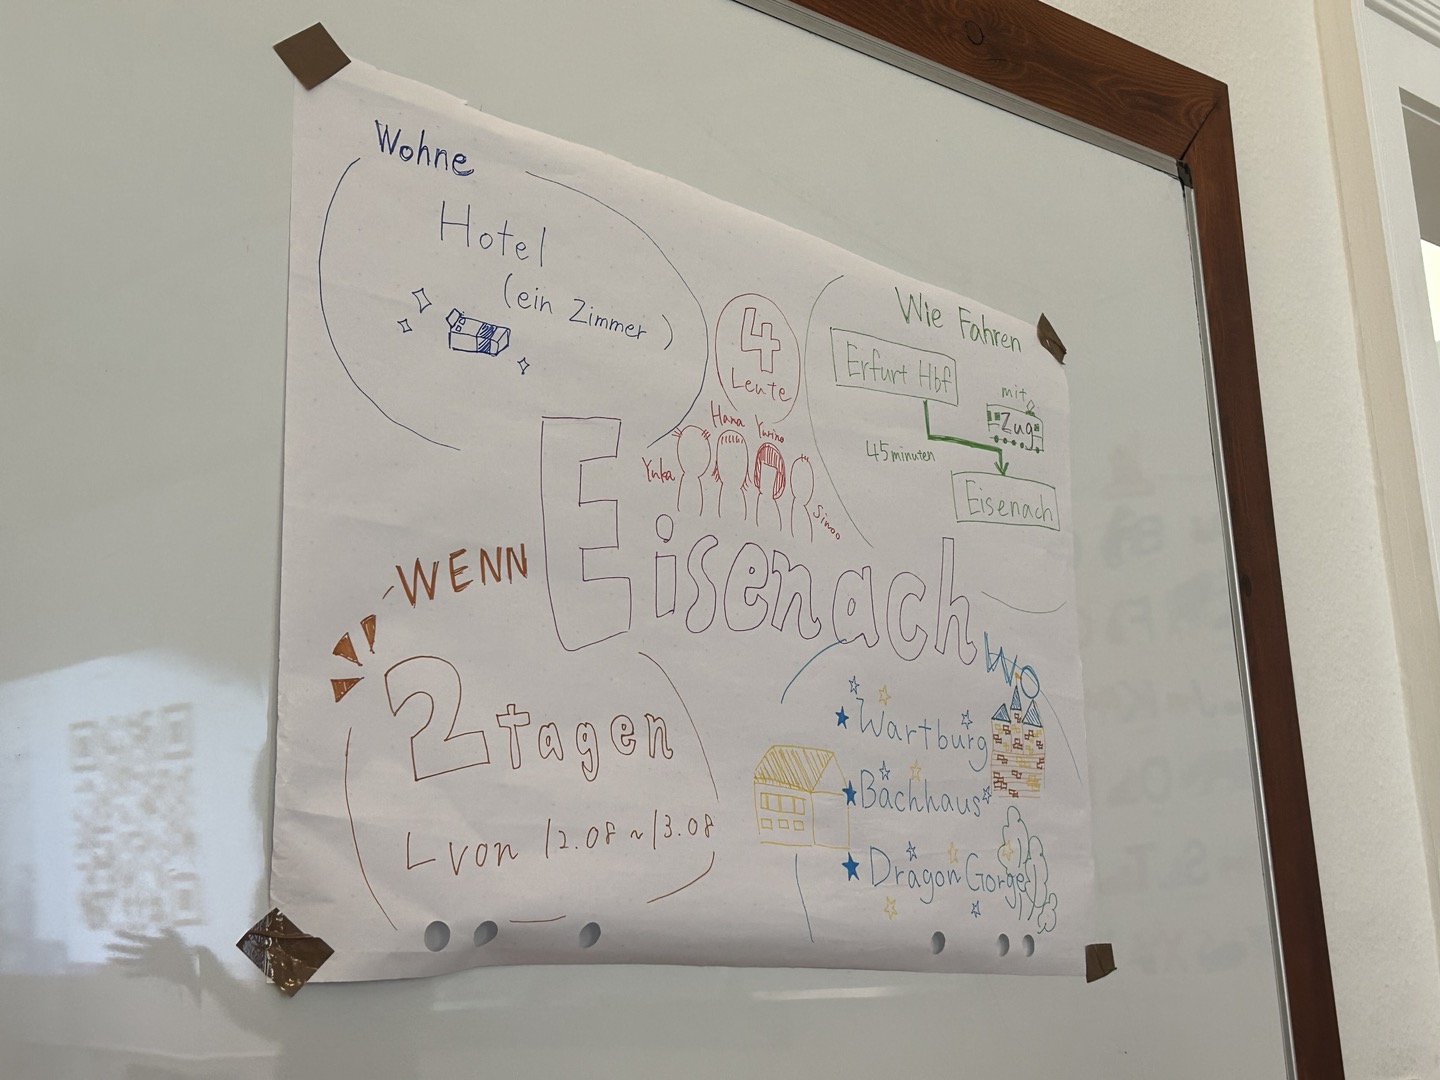 Wohne
Hotel
(ein Zimmer)
4
Leute
Yuka
Hana
Yurino
Sinoo
Wie Fahren
Erfurt Hbf
mit
Zug
45minuten
Eisenach
Eisenach
WENN
2 tagen
von 12.08 ~ 13.08
WO
Wartburg
Bachhaus
Dragon Gorge